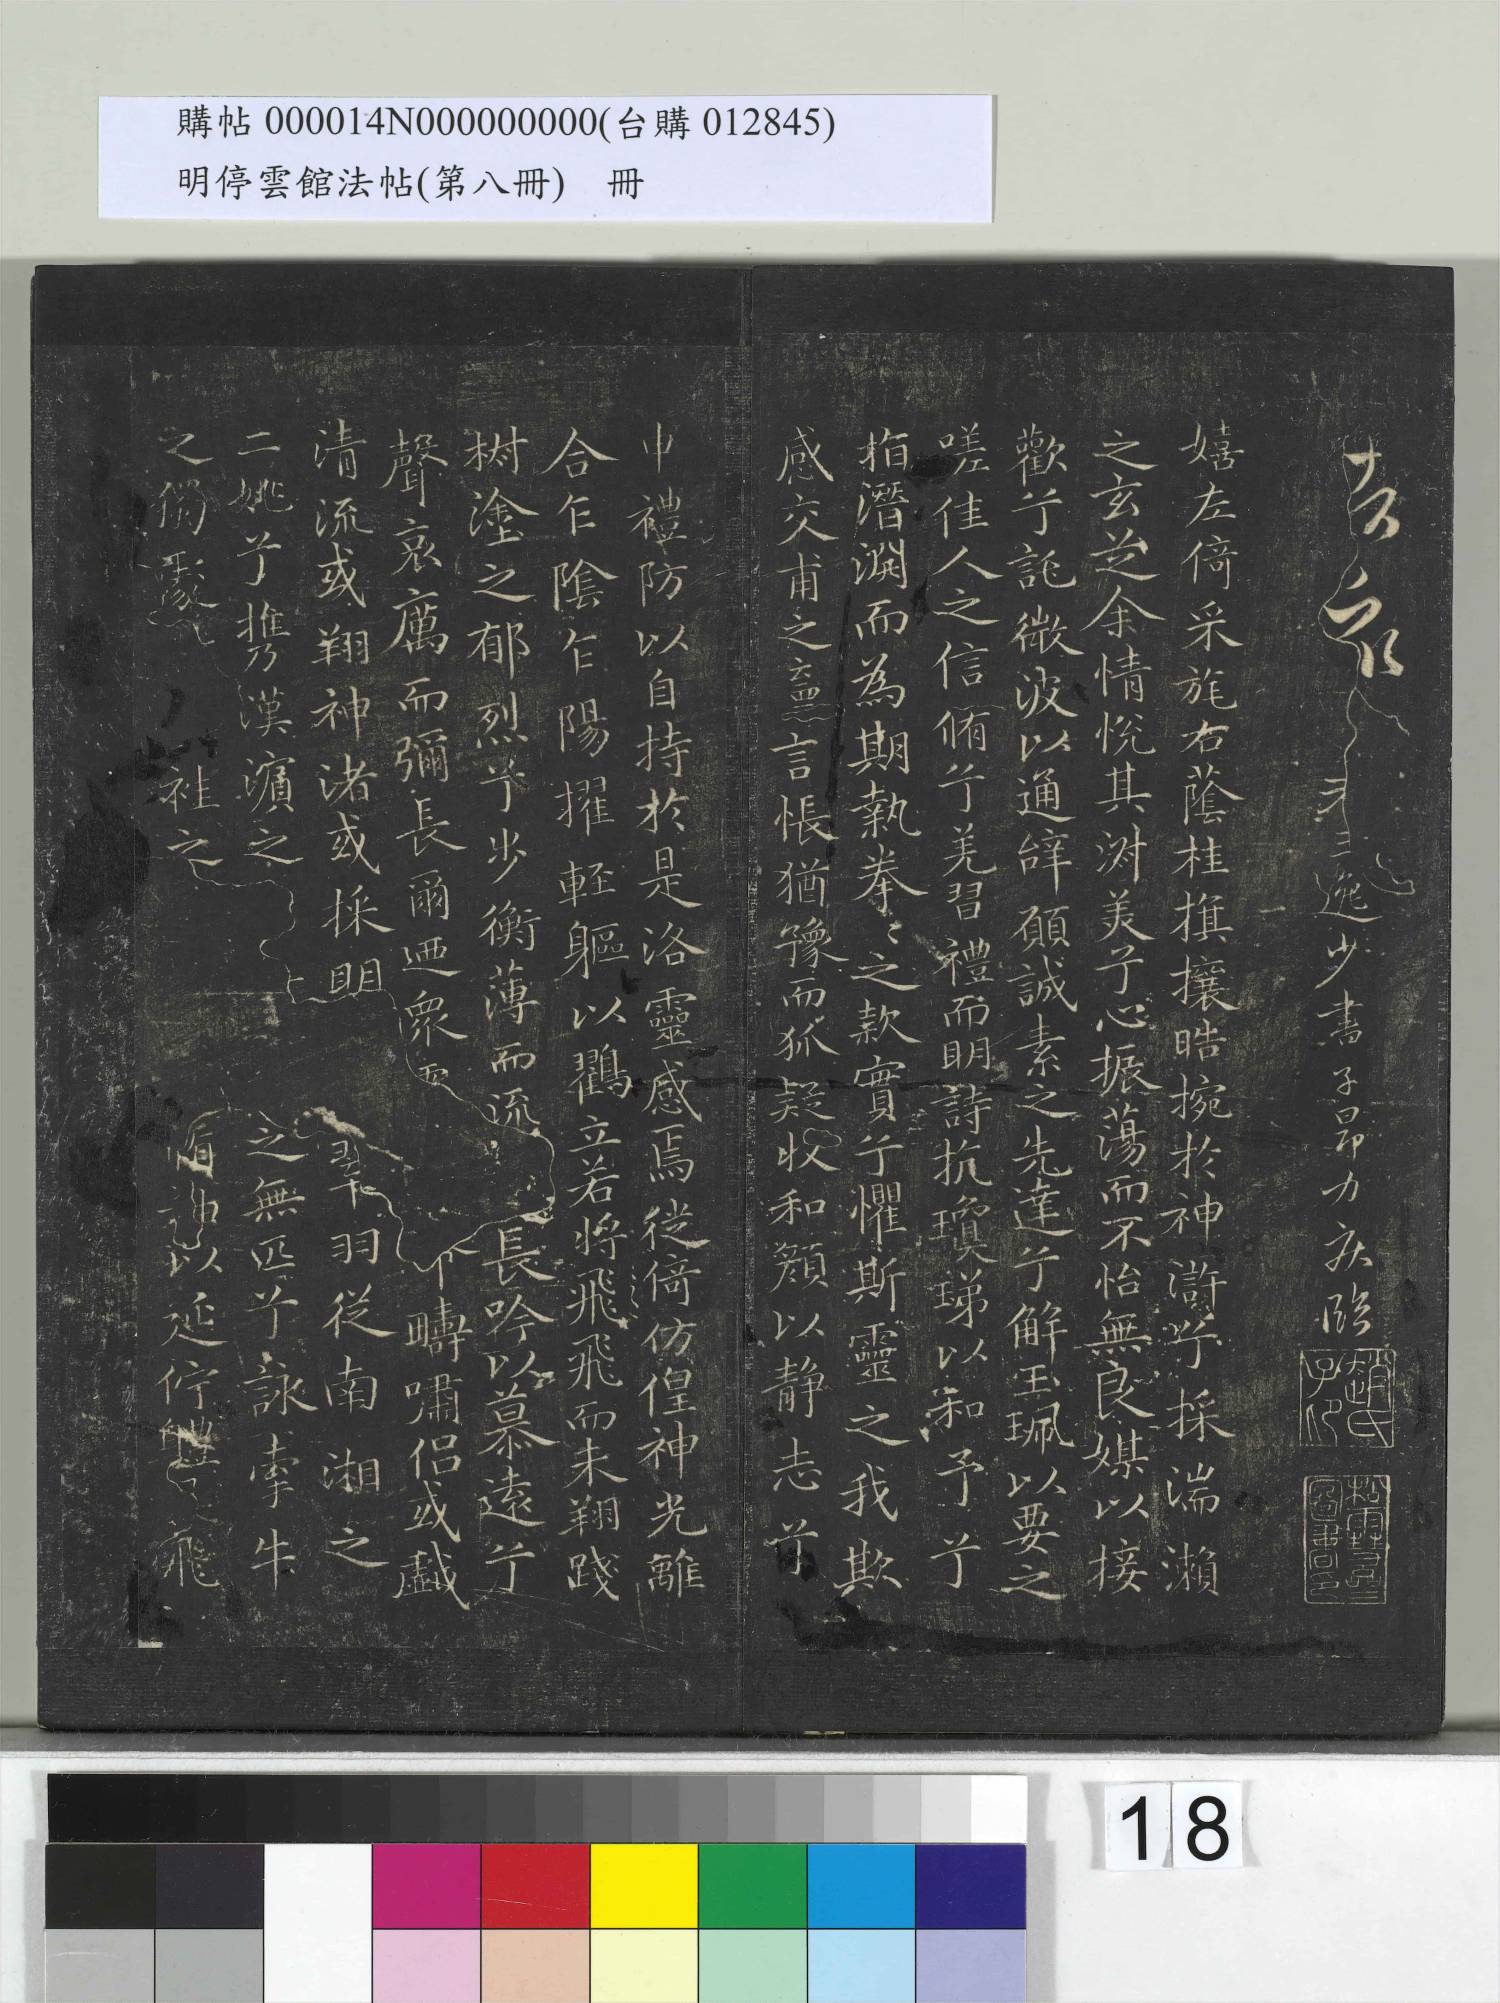 購帖 000014N000000000(台購 012845)
明停雲館法帖(第八冊)　冊
逸少書子昂力疾臨
嬉左倚采旄右蔭桂旗攘晧捥於神滸兮採湍瀨
之玄芝余情悅其淑美兮心振蕩而不怡無良媒以接
歡兮託微波以通辭願誠素之先達兮解玉珮以要之
嗟佳人之信脩兮羌習禮而明詩抗瓊珶以和予兮
指潛淵而為期執拳〻之款實兮懼斯靈之我欺
感交甫之棄言悵猶豫而狐疑收和顏以靜志兮
申禮防以自持於是洛靈感焉徙倚仿偟神光離
合乍陰乍陽擢輕軀以鶴立若將飛飛而未翔踐
椒塗之郁烈兮步衡薄而流 長吟以慕遠兮
聲哀厲而彌長爾迺眾 疇嘯侶或戲
清流或翔神渚或採明 翠羽從南湘之
二姚兮攜漢濱之 之無匹兮詠牽牛
之獨 袿之 脩袖以延佇體 飛
18